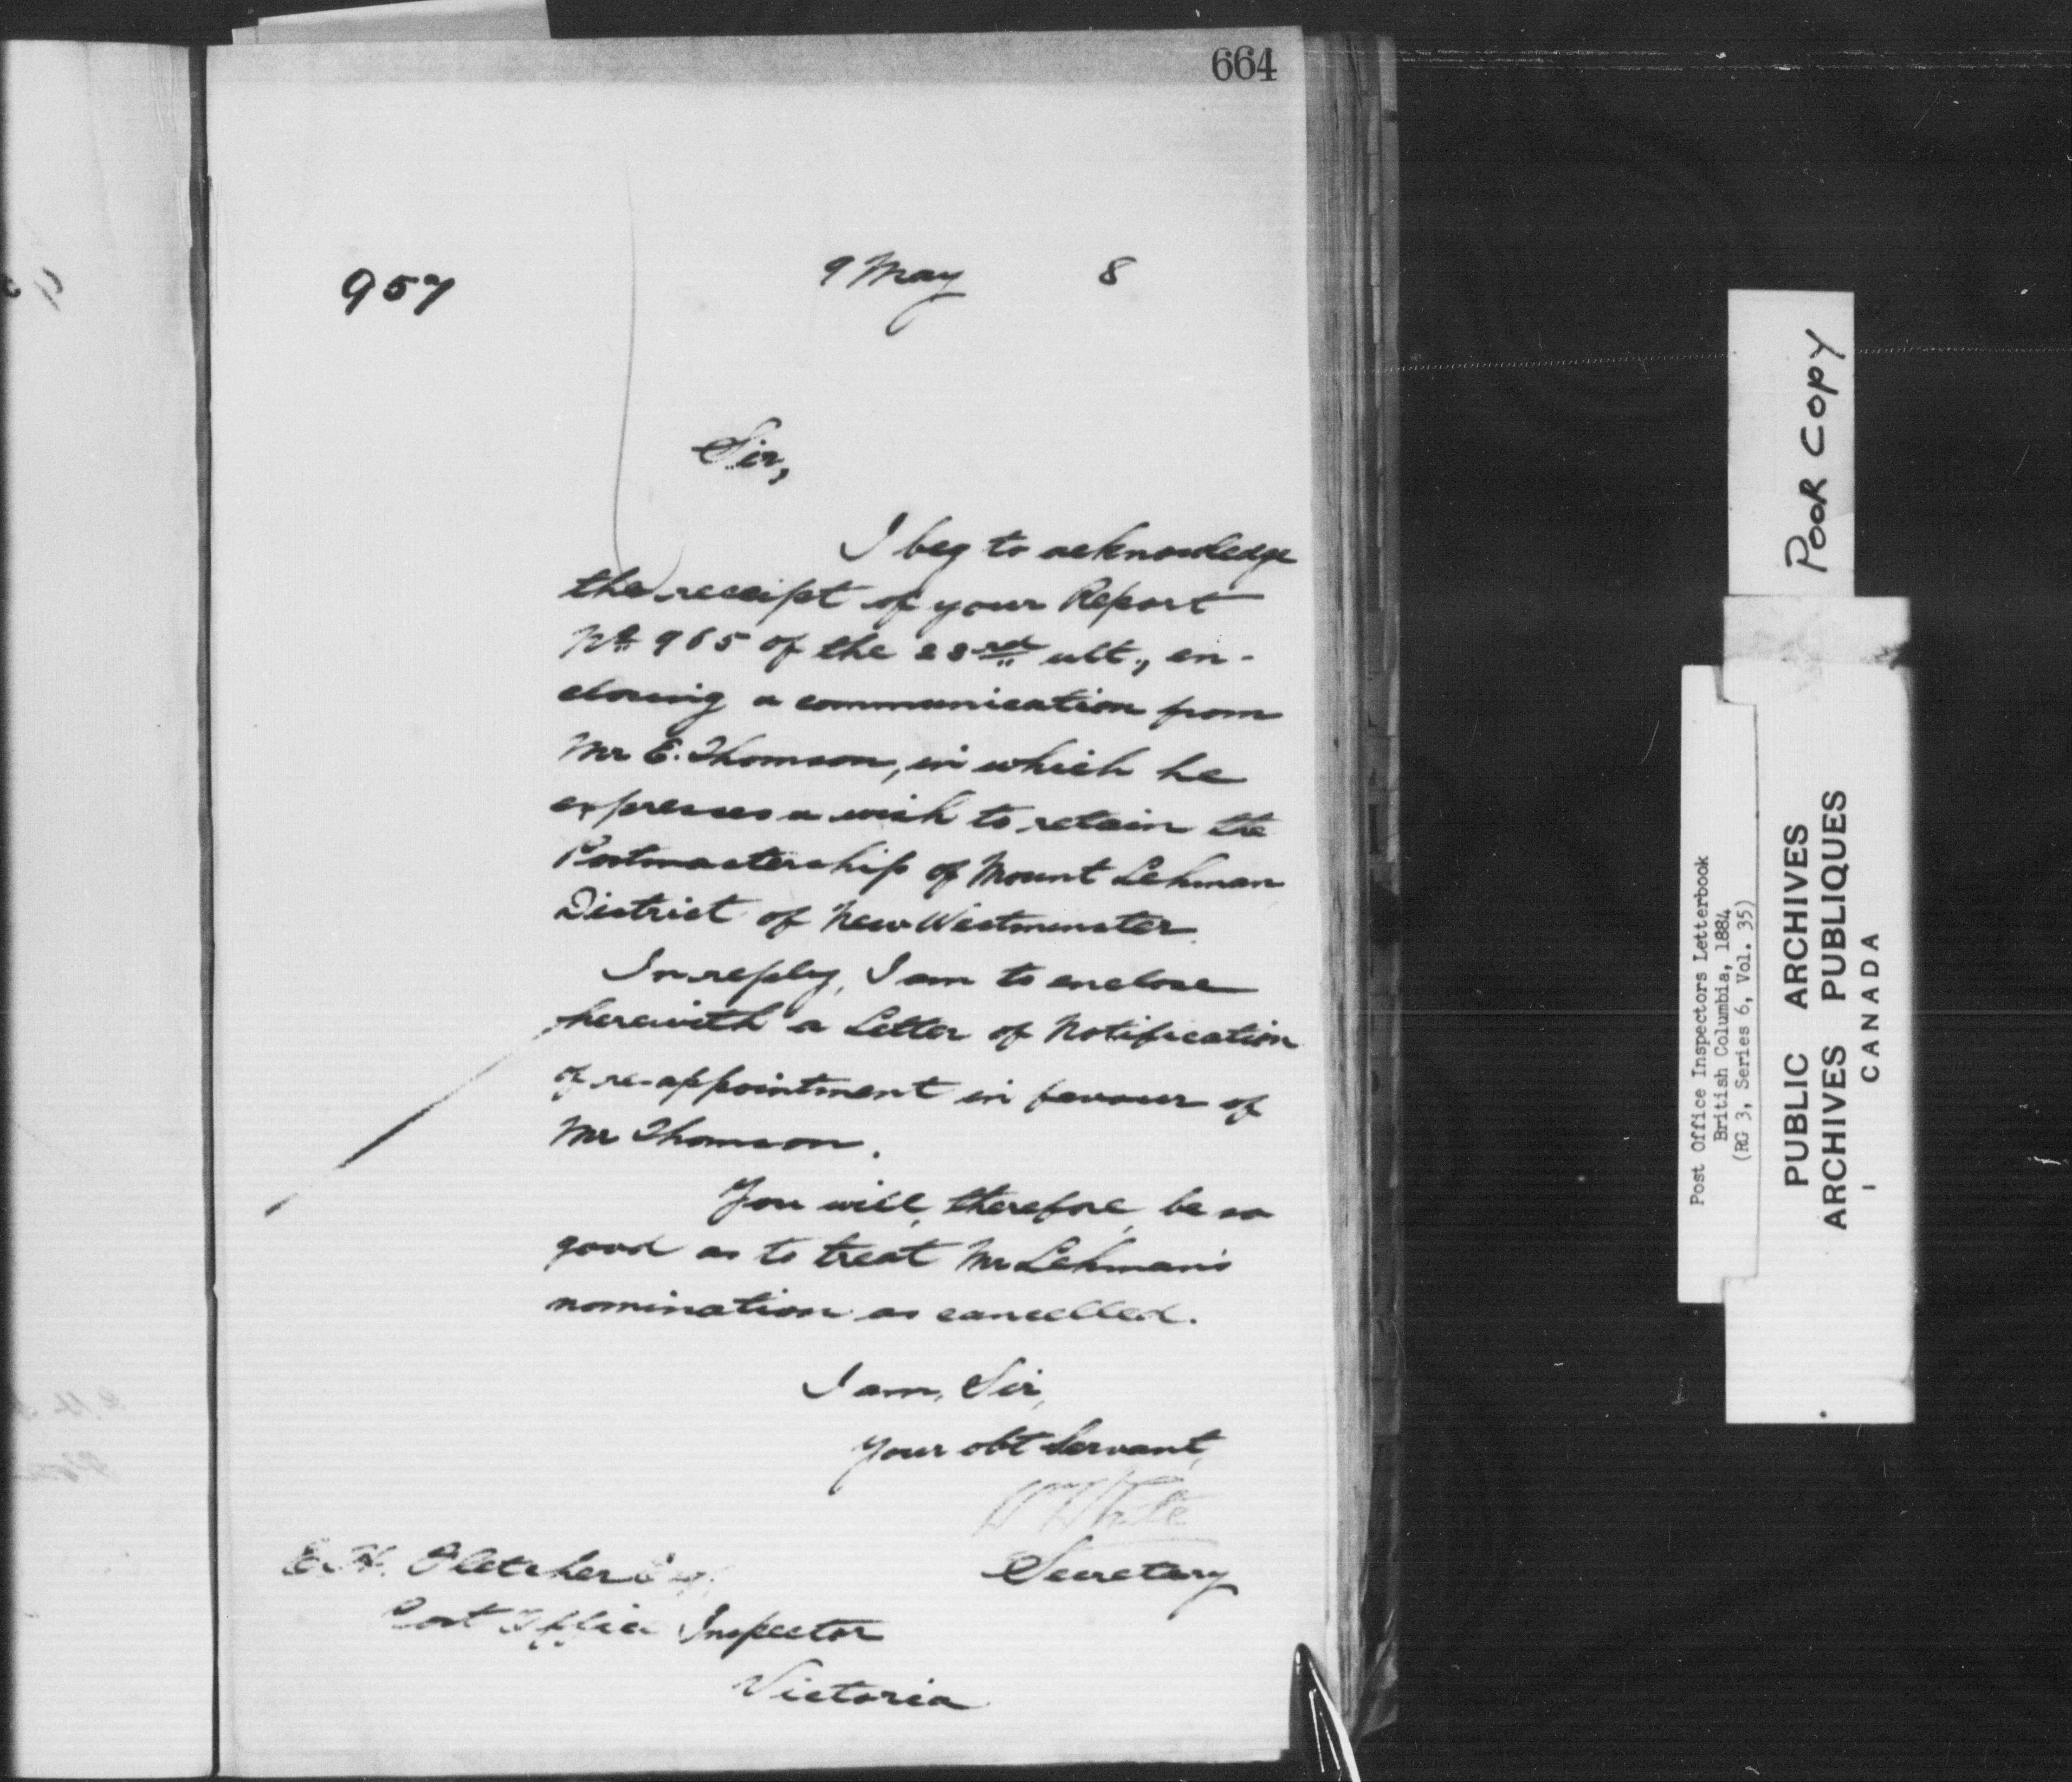 664
957
9 May 8
Sir,
I beg to acknowledge
the receipt of your Report
No 965 of the 23rd ult., en-
closing a communication from
Mr E. Thomson, in which he
expresses a wish to retain the
Postmastership of Mount Lehman
District of New Westminster.
In reply, I am to enclose
herewith a Letter of Notification
of re-appointment in favour of
Mr Thomson.
You will, therefore, be so
good as to treat Mr Lehman's
nomination as cancelled.
I am, Sir,
Your obt Servant,
W White
Secretary
E. H. Fletcher Esq.
Post Office Inspector
Victoria
POOR COPY
Post Office Inspectors Letterbook
British Columbia, 1884
(RG 3, Series 6, Vol. 35)
PUBLIC ARCHIVES
ARCHIVES PUBLIQUES
CANADA